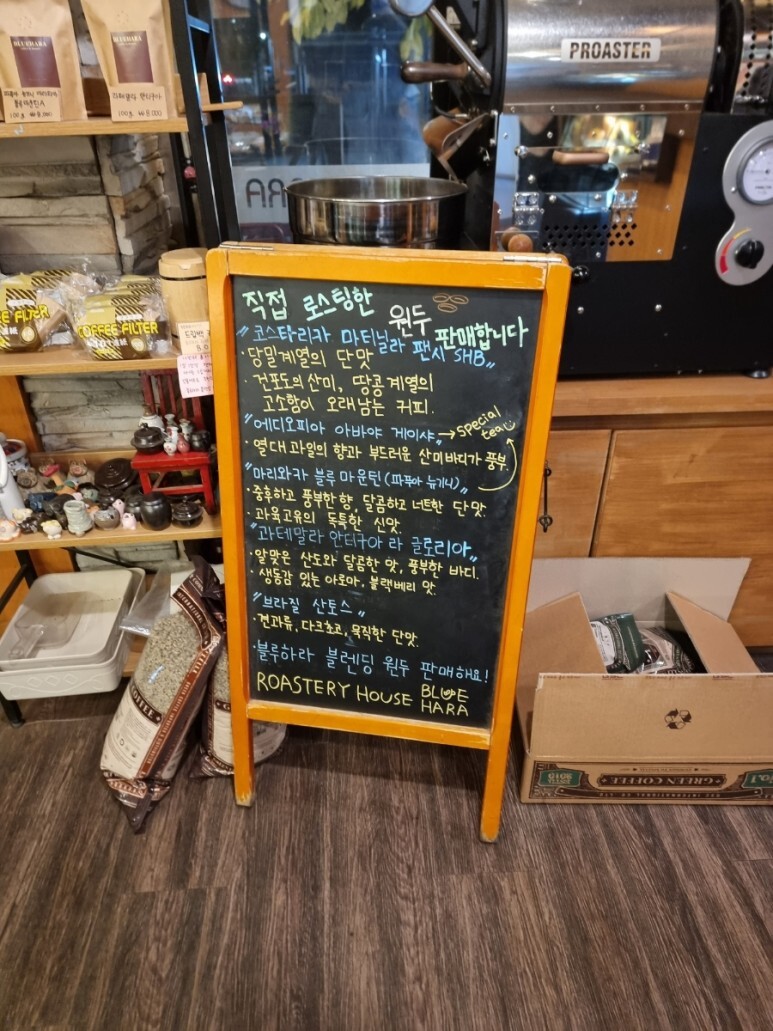 BLUEHARA
BLUEHARA
100g ₩8,000
과테말라 안티구아
100g ₩8,000
PROASTER
COFFEE FILTER
COFFEE FILTER
드립백
직접 로스팅한 원두 판매합니다
"코스타리카 마티닐라 팬시 SHB"
·당밀계열의 단맛
·건포도의산미, 땅콩계열의
고소함이 오래남는 커피.
"에디오피아 아바야 게이샤" → special
tea
·열대과일의 향과 부드러운 산미바디가 풍부.
"마리와카 블루 마운틴(파푸아 뉴기니)"
·중후하고 풍부한향, 달콤하고 너트한 단맛.
·과육고유의 독특한 신맛
"과테말라 안터구아 라 글로리아"
·알맞은 산도와 달콤한 맛, 풍부한 바디.
·생동감 있는 아로마, 블랙베리 맛.
"브라질 산토스"
·견과류, 다크초코, 묵직한 단맛.
·블루하라 블렌딩 원두 판매해요!
ROASTERY HOUSE BLUE
HARA
GREEN COFFEE
No.1